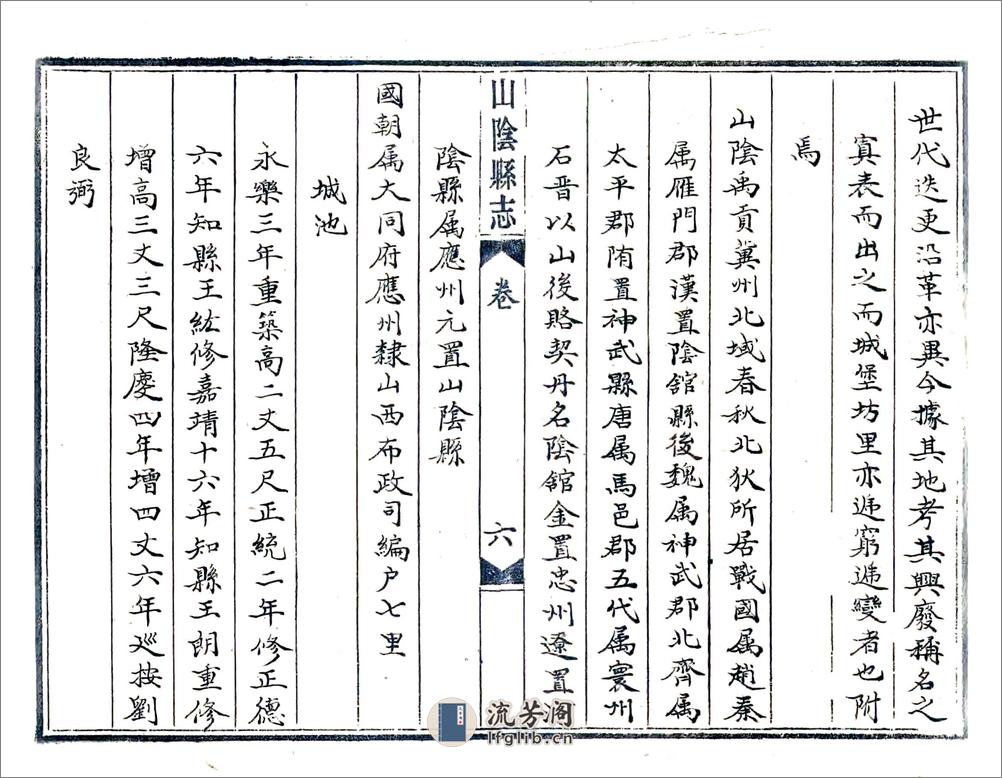 世代迭更沿革亦異今據其地考其興廢稱名之
寘表而出之而城堡坊里亦遞窮遞變者也附
焉
山陰禹貢冀州北域春秋北狄所居戰國属趙秦
属雁門郡漢置陰舘縣後魏属神武郡北齊属
太平郡隋置神武縣唐属馬邑郡五代属寰州
石晋以山後賂契丹名陰舘金置忠州遼置
山陰縣志 卷 六
陰縣属應州元置山陰縣
國朝属大同府應州隸山西布政司編户七里
城池
永樂三年重築高二丈五尺正統二年修正德
六年知縣王紘修嘉靖十六年知縣王朗重修
增高三丈三尺隆慶四年增四丈六年巡按劉
良弼
流芳阁
lfglib.cn